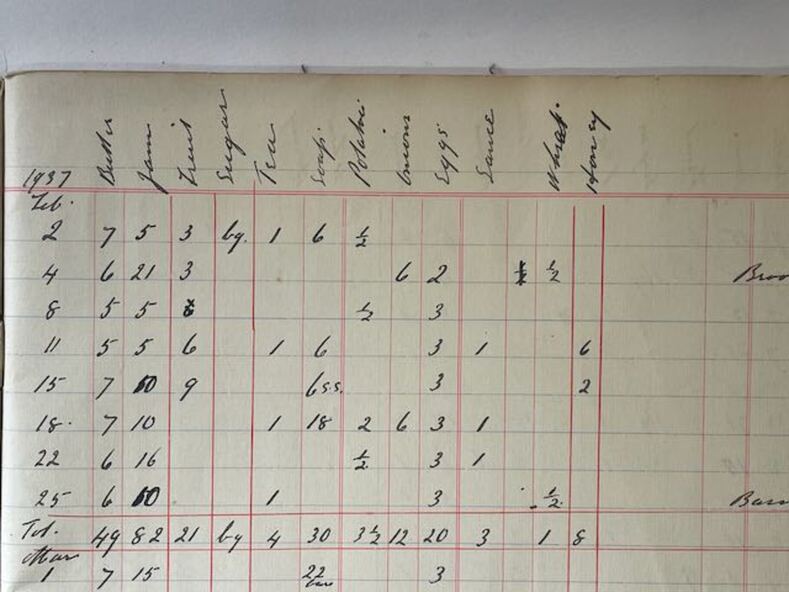 1937 Butter Jam Fruit Sugar Tea Soap. Onions Eggs Sauce Wheat. Honey
Feb.
2 7 5 3 bg. 1 6 ½
4 6 21 3 6 2 ½
8 5 5 ½ 3
11 5 5 6 1 6 3 1 6
15 7 10 9 6 s.s. 3 2
18. 7 10 1 18 2 6 3 1
22 6 16 ½ 3 1
25 6 10 1 3 ½
Tot. 49 82 21 bg 4 30 3½ 12 20 3 1 8
Mar
1 7 15 22 3